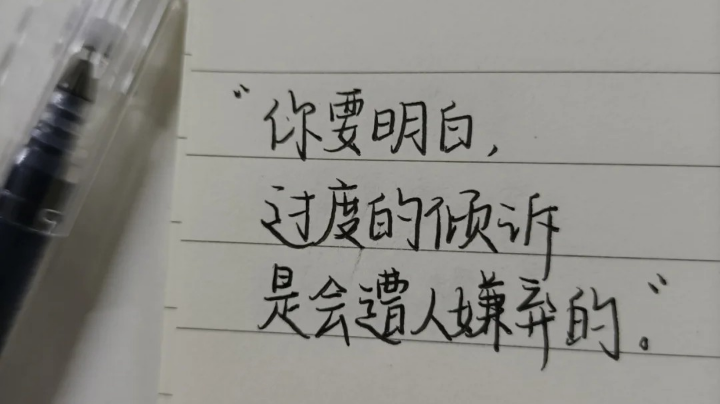 “你要明白,
过度的倾诉
是会遭人嫌弃的。”